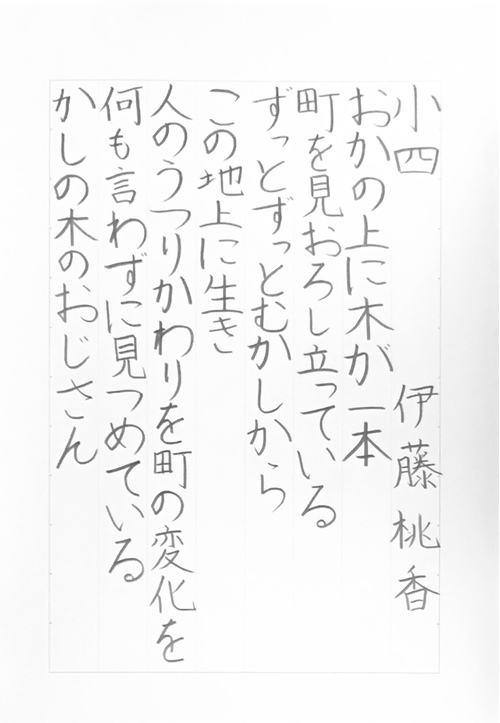 小四 伊藤桃香
おかの上に木が一本
町を見おろし立っている
ずっとずっとむかしから
この地上に生き
人のうつりかわりを町の変化を
何も言わずに見つめている
かしの木のおじさん